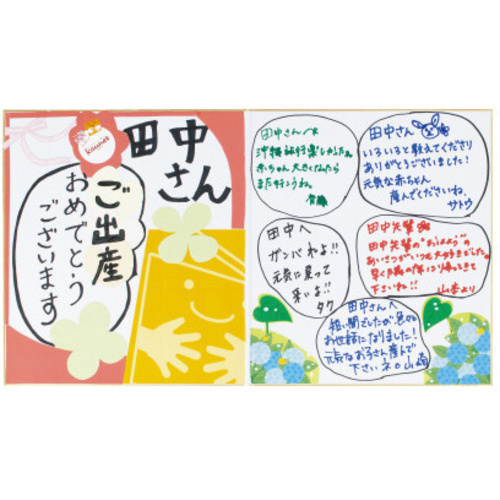 田中
さん
ご出産
おめでとう
ございます
田中さんへ
沖縄旅行楽しかったね。
赤ちゃん大きくなったら
また行こうね。
田中さん
いろいろと教えてくださり
ありがとうございました!
元気な赤ちゃん
産んでくださいね。
サトウ
田中へ
ガンバれよ!!
元気に戻って
来いよ!!
タク
田中先輩
田中先輩の"おはよう"の
あいさつがいつも大好きでした。
帰ってきて
下さいね!!
山本より
田中さんへ
短い間でしたが色々
お世話になりました!
元気なお子さん産んで
下さいネ